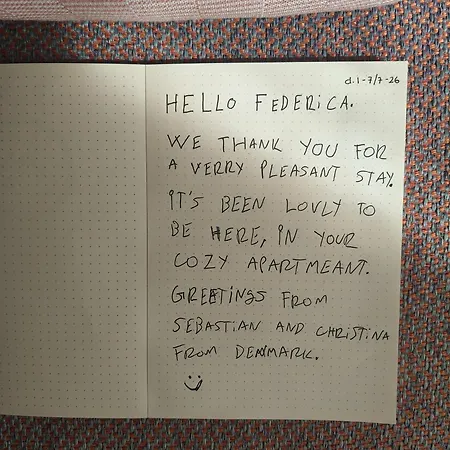 d.1-7/7-26
HELLO FEDERICA.
WE THANK YOU FOR
A VERRY PLEASANT STAY.
IT'S BEEN LOVLY TO
BE HERE, IN YOUR
COZY APARTMEANT.
GREETINGS FROM
SEBASTIAN AND CHRISTINA
FROM DENMARK.